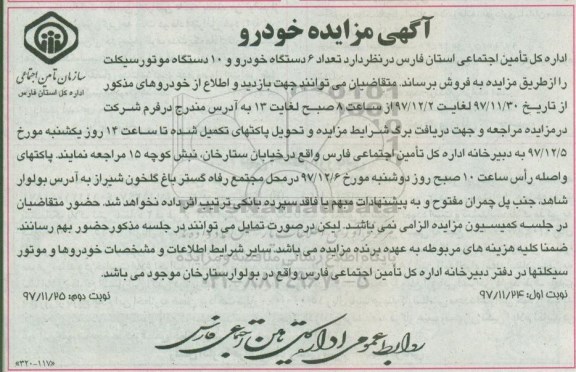 آگهی مزایده خودرو
سازمان تأمین اجتماعی
اداره کل استان فارس
اداره کل تأمین اجتماعی استان فارس در نظر دارد تعداد ۶ دستگاه خودرو و ۱۰ دستگاه موتور سیکلت
را از طریق مزایده به فروش برساند. متقاضیان می توانند جهت بازدید و اطلاع از خودروهای مذکور
از تاریخ ۹۷/۱۱/۳۰ لغایت ۹۷/۱۲/۲ از ساعت ۸ صبح لغایت ۱۳ به آدرس مندرج در فرم شرکت
در مزایده مراجعه و جهت دریافت برگ شرایط مزایده و تحویل پاکتهای تکمیل شده تا ساعت ۱۴ روز یکشنبه مورخ
۹۷/۱۲/۵ به دبیرخانه اداره کل تأمین اجتماعی فارس واقع در خیابان ستارخان، نبش کوچه ۱۵ مراجعه نمایند. پاکتهای
واصله رأس ساعت ۱۰ صبح روز دوشنبه مورخ ۹۷/۱۲/۶ در محل مجتمع رفاه گستر باغ گلخون شیراز به آدرس بولوار
شاهد، جنب پل چمران مفتوح و به پیشنهادات مبهم یا فاقد سپرده بانکی ترتیب اثر داده نخواهد شد. حضور متقاضیان
در جلسه کمیسیون مزایده الزامی نمی باشد. لیکن در صورت تمایل می توانند در جلسه مذکور حضور بهم رسانند.
ضمنا کلیه هزینه های مربوطه به عهده برنده مزایده می باشد. سایر شرایط اطلاعات و مشخصات خودروها و موتور
سیکلتها در دفتر دبیرخانه اداره کل تأمین اجتماعی فارس واقع در بولوار ستارخان موجود می باشد.
نوبت اول: ۹۷/۱۱/۲۴
نوبت دوم: ۹۷/۱۱/۲۵
روابط عمومی اداره کل تأمین اجتماعی فارس
«۳۲۰-۱۱۷»